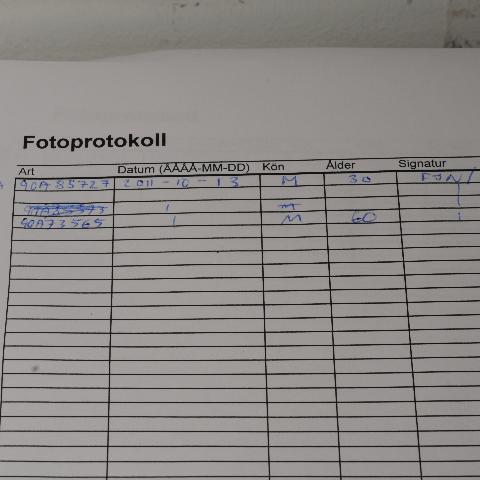 Fotoprotokoll
Art Datum (ÅÅÅÅ-MM-DD) Kön Ålder Signatur
90A85727 2011-10-13 M 30 FJN/
M
90A73565 M 60